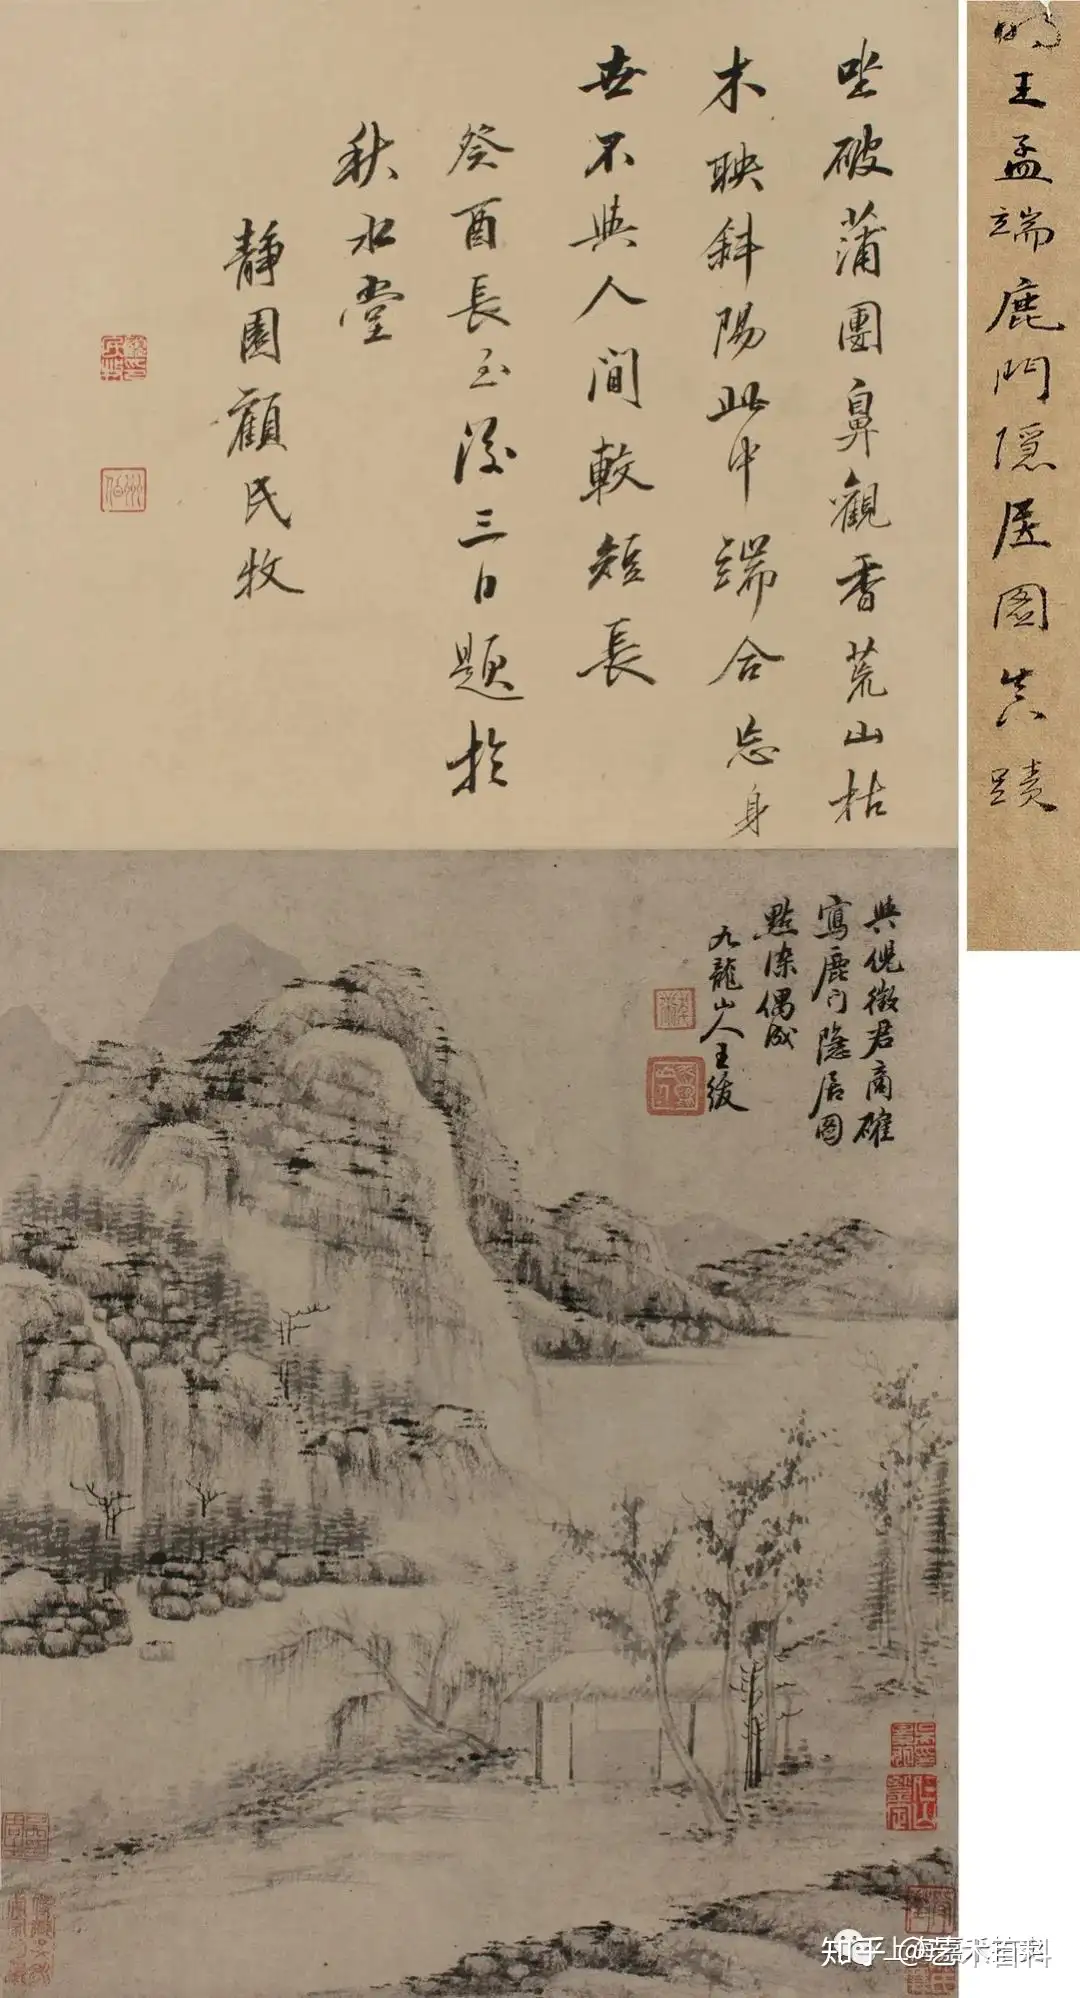 明王孟端鹿門隱居圖真蹟
坐破蒲團鼻觀香荒山枯
木映斜陽此中端合忘身
世不與人間較短長
癸酉長至後三日題於
秋水堂
靜園顧氏牧
與倪徵君商確
寫鹿門隱居圖
點染偶成
九龍山人王紱
知乎